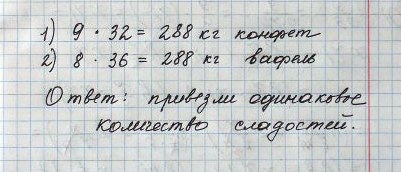 1) 9 · 32 = 288 кг конфет
2) 8 · 36 = 288 кг вафель
Ответ: привезли одинаковое
количество сладостей.